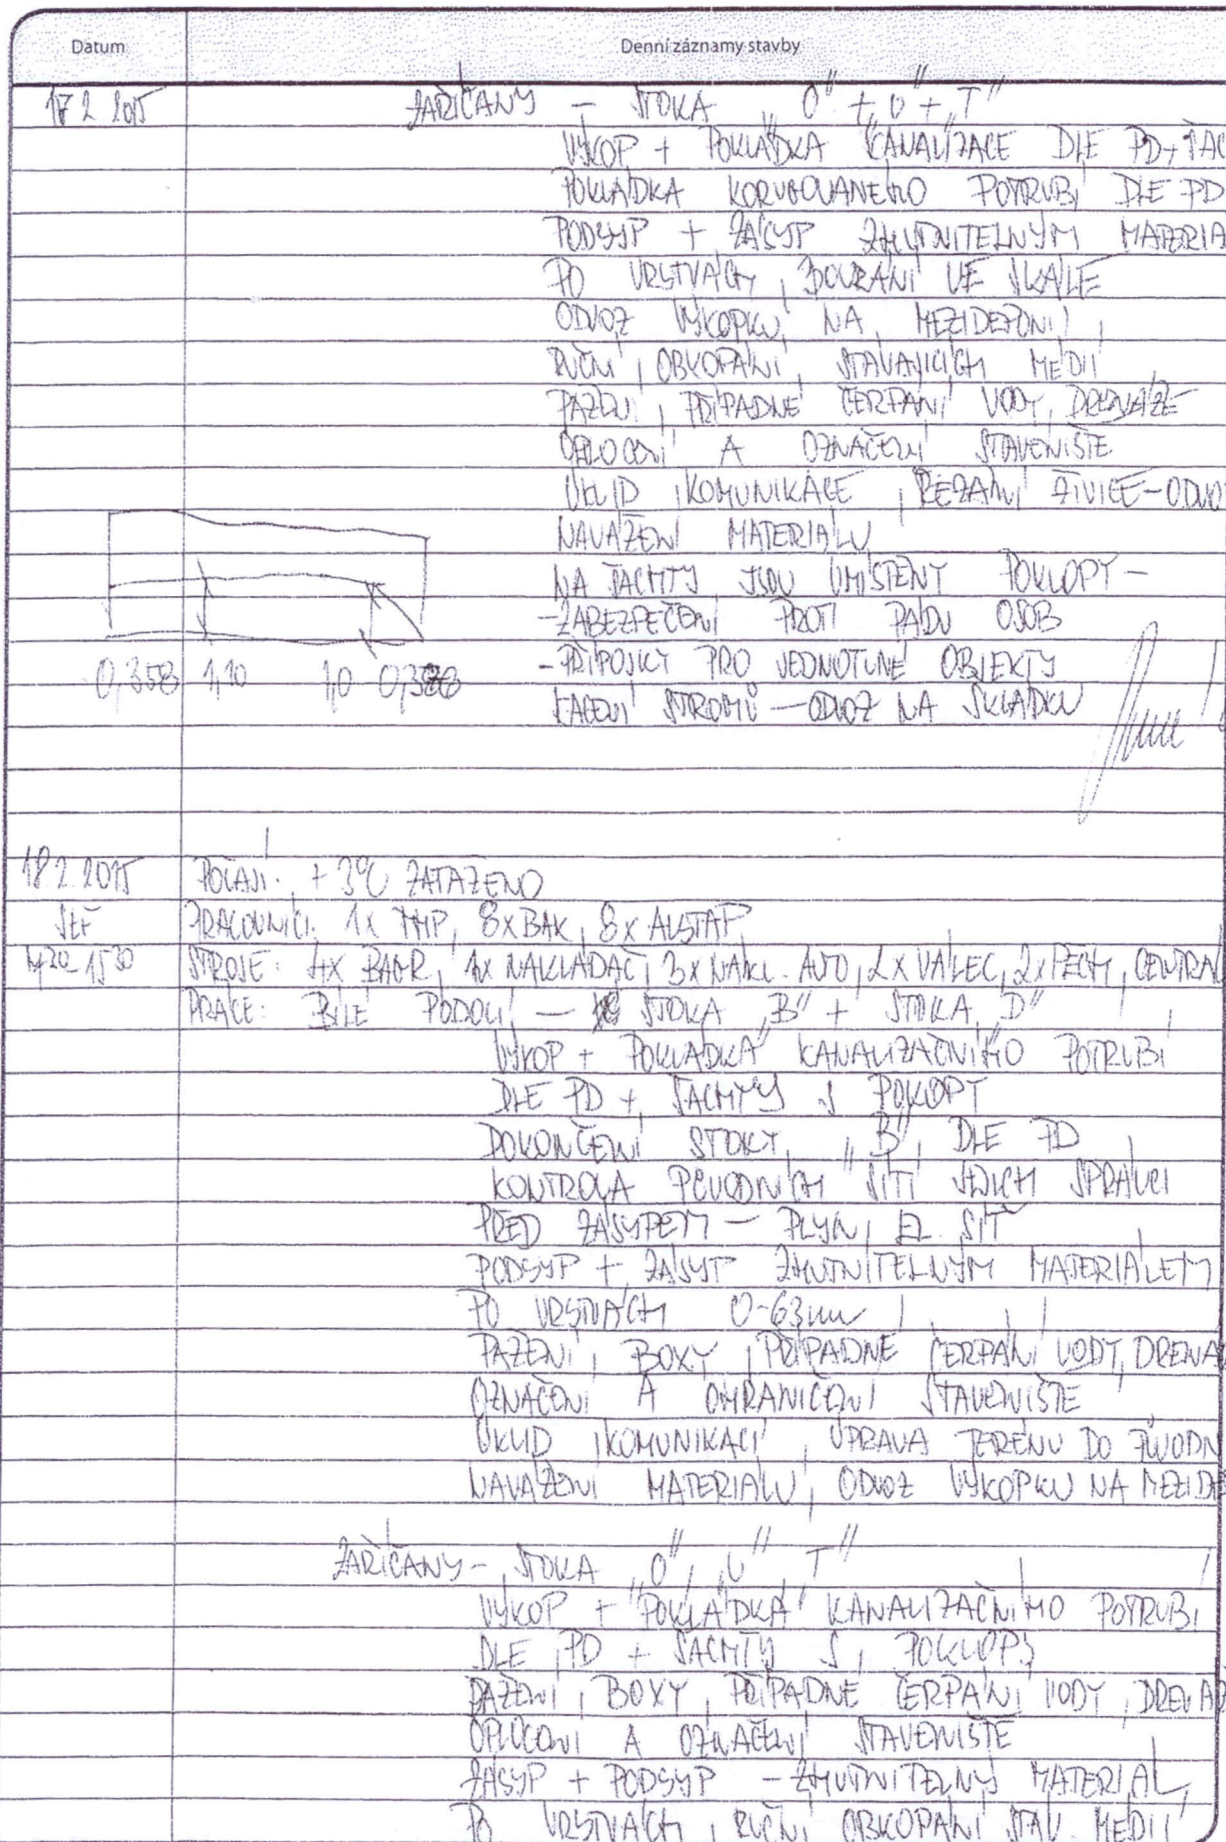 Datum Denní záznamy stavby
17.2.2015 ZAŘÍČANY - STOKA „O" + „U" + „T"
VÝKOP + POKLÁDKA KANALIZACE DLE PD + ŠAC
POKLÁDKA KORUGOVANÉHO POTRUBÍ DLE PD
PODSYP + ZÁSYP ZHUTNITELNÝM MATERIA
PO VRSTVÁCH, BOURÁNÍ VE SKÁLE
ODVOZ VÝKOPKU NA MEZIDEPONII
RUČNÍ OBKOPÁNÍ STÁVAJÍCÍCH MEDIÍ
PAŽENÍ, PŘÍPADNÉ ČERPÁNÍ VODY, DRENÁŽE
OPLOCENÍ A OZNAČENÍ STAVENIŠTĚ
ÚKLID KOMUNIKACE, ŘEZÁNÍ ŽIVICE - ODVO
NAVÁŽENÍ MATERIÁLU
NA ŠACHTY JSOU UMÍSTĚNY POKLOPY -
- ZABEZPEČENÍ PROTI PÁDU OSOB
- PŘÍPOJKY PRO JEDNOTLIVÉ OBJEKTY
0,358 1,10 1,0
KÁCENÍ STROMŮ - ODVOZ NA SKLÁDKU
18.2.2015 POČASÍ: +3°C ZATAŽENO
STŘ PRACOVNÍCI: 1x THP, 8x BAK, 8x ALSTAP
15 30 STROJE: 4x BAGR, 1x NAKLADAČ, 3x NÁKL. AUTO, 2x VÁLEC, 2x PĚCH, CENTRÁL
PRÁCE: BÍLÉ PODOLÍ - STOKA „B" + STOKA „D"
VÝKOP + POKLÁDKA KANALIZAČNÍHO POTRUBÍ
DLE PD + ŠACHTY S POKLOPY
DOKONČENÍ STOKY „B" DLE PD
KONTROLA PŮVODNÍCH SÍTÍ JEJICH SPRÁVCI
PŘED ZÁSYPEM - PLYN, EL. SÍŤ
PODSYP + ZÁSYP ZHUTNITELNÝM MATERIÁLEM
PO VRSTVÁCH 0-63mm
PAŽENÍ, BOXY, PŘÍPADNÉ ČERPÁNÍ VODY, DRENÁ
OZNAČENÍ A OHRANIČENÍ STAVENIŠTĚ
ÚKLID KOMUNIKACÍ, ÚPRAVA TERÉNU DO PŮVODN
NAVÁŽENÍ MATERIÁLU, ODVOZ VÝKOPKU NA MEZIDE
ZAŘÍČANY - STOKA „O", „U" „T"
VÝKOP + POKLÁDKA KANALIZAČNÍHO POTRUBÍ
DLE PD + ŠACHTY S POKLOPY
PAŽENÍ, BOXY, PŘÍPADNÉ ČERPÁNÍ VODY, DRENÁŽ
OPLOCENÍ A OZNAČENÍ STAVENIŠTĚ
ZÁSYP + PODSYP - ZHUTNITELNÝ MATERIÁL
PO VRSTVÁCH, RUČNÍ OBKOPÁNÍ STÁV. MEDIÍ